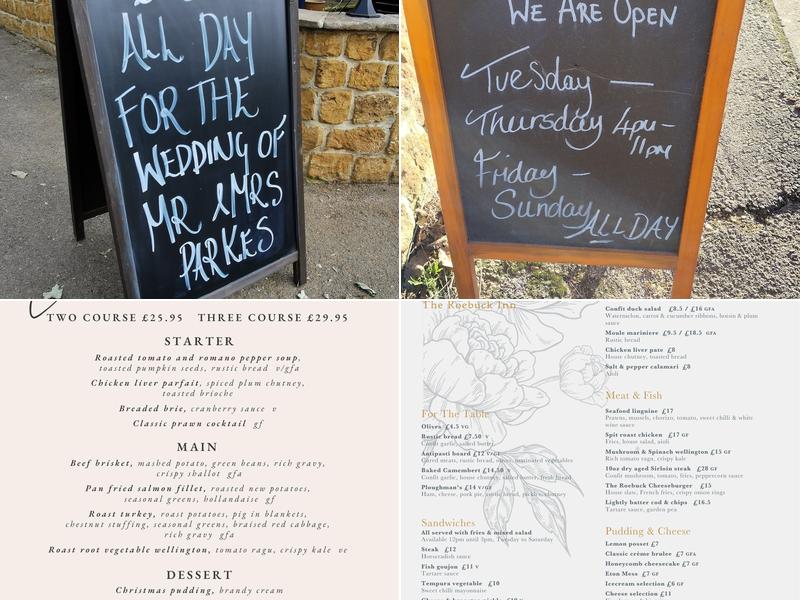 ALL DAY
FOR THE
WEDDING OF
MR & MRS
PARKES
WE ARE OPEN
Tuesday —
Thursday 4pm-
11pm
Friday -
Sunday ALL DAY
TWO COURSE £25.95 THREE COURSE £29.95
STARTER
Roasted tomato and romano pepper soup,
toasted pumpkin seeds, rustic bread v/gfa
Chicken liver parfait, spiced plum chutney,
toasted brioche
Breaded brie, cranberry sauce v
Classic prawn cocktail gf
MAIN
Beef brisket, mashed potato, green beans, rich gravy,
crispy shallot gfa
Pan fried salmon fillet, roasted new potatoes,
seasonal greens, hollandaise gf
Roast turkey, roast potatoes, pig in blankets,
chestnut stuffing, seasonal greens, braised red cabbage,
rich gravy gfa
Roast root vegetable wellington, tomato ragu, crispy kale ve
DESSERT
Christmas pudding, brandy cream
The Roebuck Inn
For The Table
Olives £4.5 VG
Rustic bread £7.50 V
Confit garlic, salted butter
Antipasti board £12 V/GF
Cured meats, rustic bread, olives, marinated vegetables
Baked Camembert £14.50 V
Confit garlic, house chutney, salted butter, fresh bread
Ploughman's £14 V/GF
Ham, cheese, pork pie, rustic bread, pickle, chutney
Sandwiches
All served with fries & mixed salad
Available 12pm until 3pm, Tuesday to Saturday
Steak £12
Horseradish sauce
Fish goujon £11 V
Tartare sauce
Tempura vegetable £10
Sweet chilli mayonnaise
Confit duck salad £8.5 / £16 GFA
Watermelon, carrot & cucumber ribbons, hoisin & plum
sauce
Moule mariniere £9.5 / £18.5 GFA
Rustic bread
Chicken liver pate £8
House chutney, toasted bread
Salt & pepper calamari £8
Aioli
Meat & Fish
Seafood linguine £17
Prawns, mussels, chorizo, tomato, sweet chilli & white
wine sauce
Spit roast chicken £17 GF
Fries, house salad, aioli
Mushroom & Spinach wellington £15 GF
Rich tomato ragu, crispy kale
10oz dry aged Sirloin steak £28 GF
Confit mushroom, tomato, fries, peppercorn sauce
The Roebuck Cheeseburger £15
House slaw, French fries, crispy onion rings
Lightly batter cod & chips £16.5
Tartare sauce, garden pea
Pudding & Cheese
Lemon posset £7
Classic crème brulee £7 GFA
Honeycomb cheesecake £7 GF
Eton Mess £7 GF
Icecream selection £6 GF
Cheese selection £11